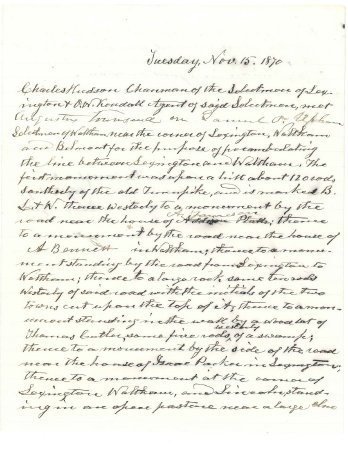 Tuesday, Nov. 15, 1870
Charles Hudson Chairman of the Selectmen of Lex-
ington & Kendall Agent of said Selectmen, met
Augustus Samuel
Selectmen of Waltham, near the corner of Lexington, Waltham
and Belmont for the purpose of perambulating
the line between Lexington and Waltham. The
first monument was upon a hill about 120 rods
southerly of the old Turnpike, and is marked B
L & W. thence westerly to a monument by the
road near the house of thence
to a monument by the road near the house of
Bennett in Waltham; thence to a monu-
ment standing by the road from Lexington to
Waltham; thence to a large rock some two rods
westerly of said road with the initials of the two
towns cut upon the top of it; thence to a mon-
ument standing in the wall by a wood lot of
Thomas Cutler, some five rods westerly of a swamp;
thence to a monument by the side of the road
near the house of Isaac Parker in Lexington,
thence to a monument at the corner of
Lexington Waltham, and Lincoln, stand-
ing in an open pasture near a large